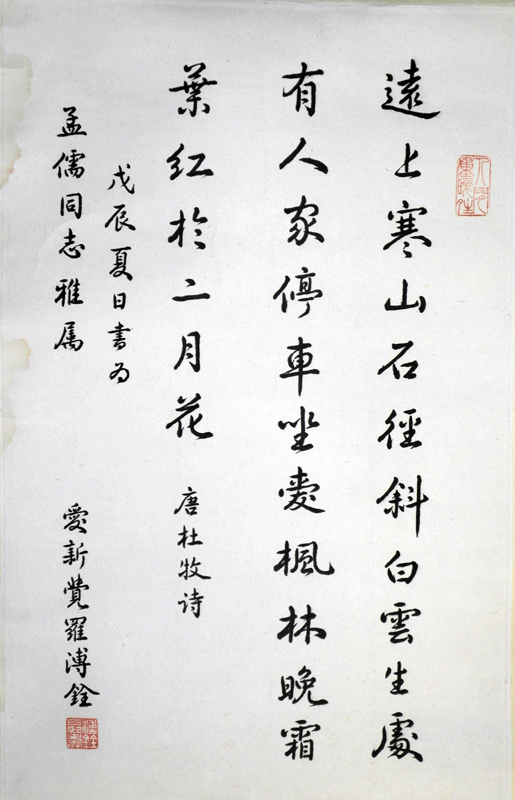 遠上寒山石徑斜白雲生處
有人家停車坐愛楓林晚霜
葉红於二月花
唐杜牧诗
戊辰夏日書为
孟儒同志雅属
愛新覺羅溥銓